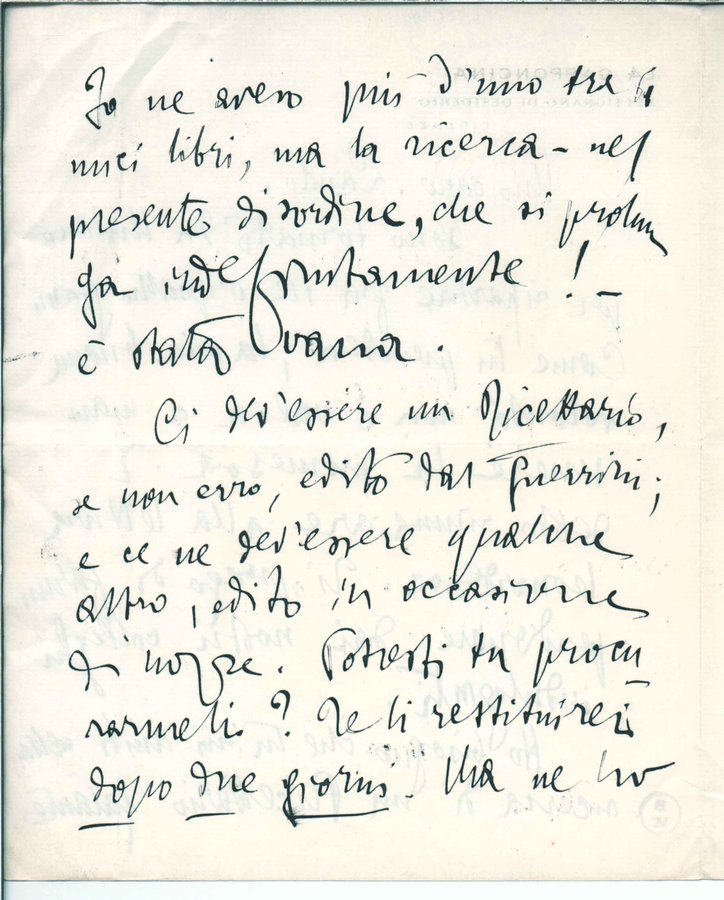 Io ne avevo più d'uno tra i
miei libri, ma la ricerca – nel
presente disordine, che si prolun
ga indefinitamente! –
è stata vana.
Ci dev'essere un Ricettario,
se non erro, edito dal Guerrini;
e ce ne dev'essere qualche
altro, edito in occasione
di nozze. Potresti tu procu
rarmeli? Te li restituirei
dopo due giorni. Ma ne ho